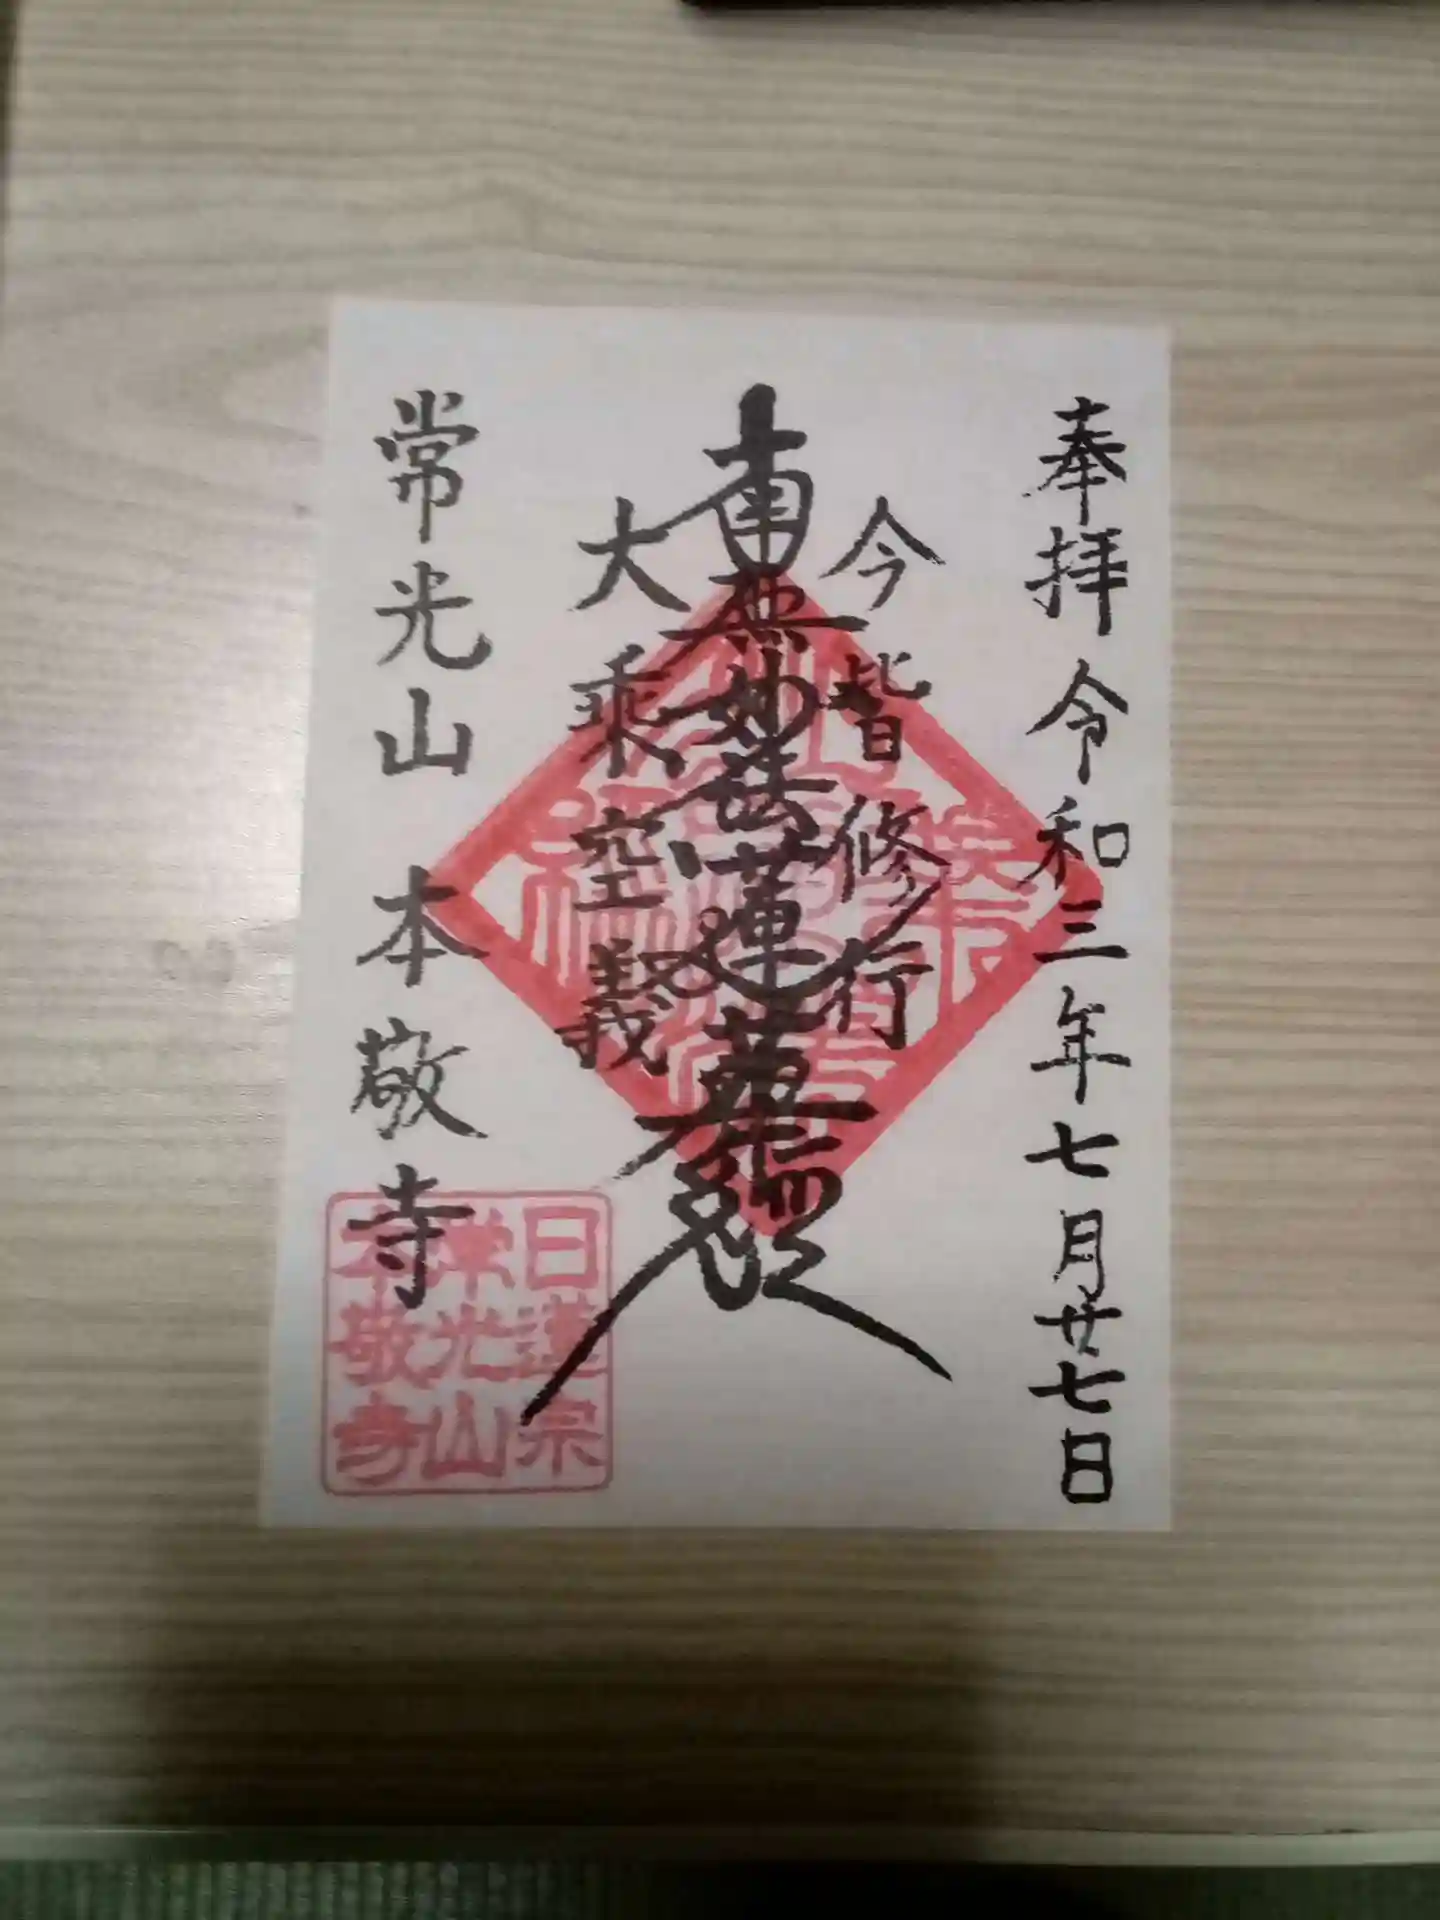 奉拝 令和三年七月廿七日
今皆修行
南無妙法蓮華経
大乗空義
常光山 本敬寺
日蓮宗
常光山
本敬寺